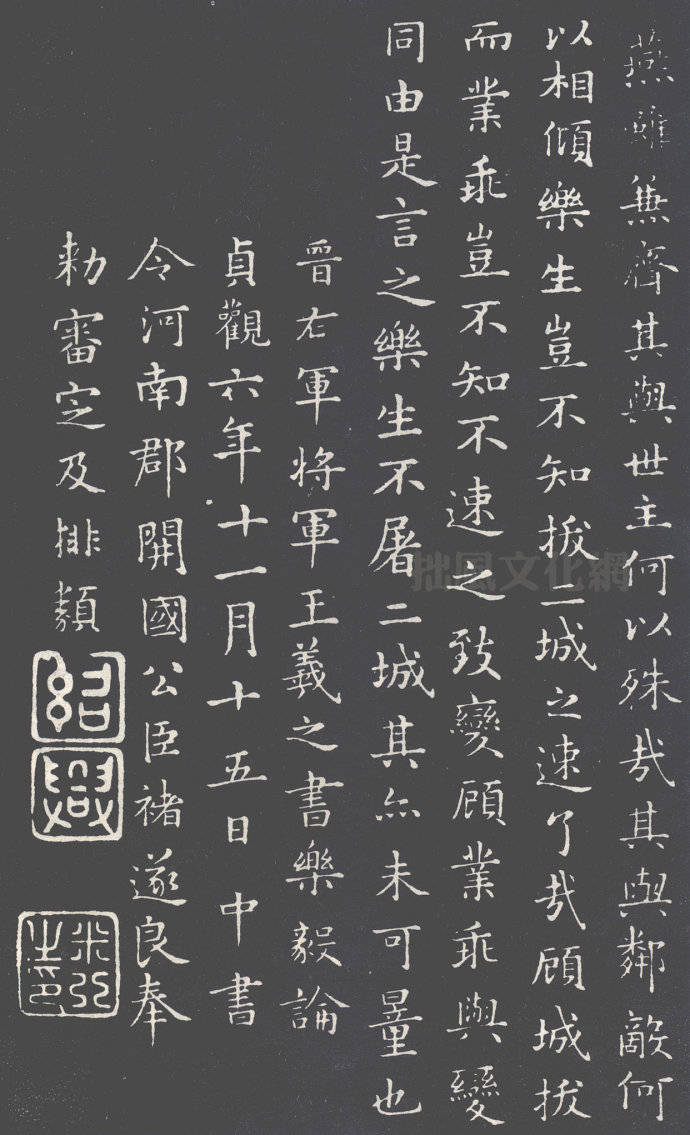 燕雖兼齊其與世主何以殊哉其與鄰敵何
以相傾樂生豈不知拔二城之速了哉顧城拔
而業乖豈不知不速之致變顧業乖與變
同由是言之樂生不屠二城其亦未可量也
晉右軍將軍王羲之書樂毅論
貞觀六年十一月十五日中書
令河南郡開國公臣褚遂良奉
勅審定及排類
紹興
拙風文化網